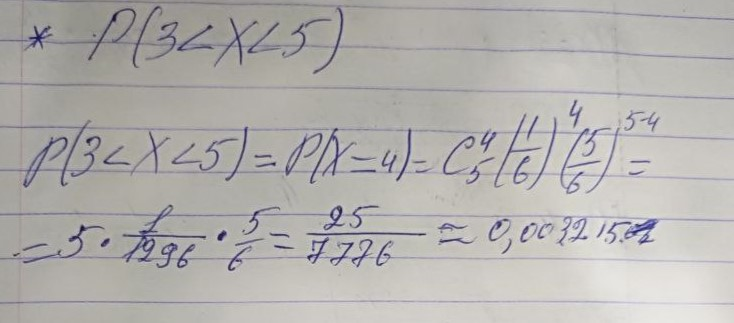 * P(3<X<5)
P(3<X<5)=P(X=4)=C₅⁴(1/6)⁴(5/6)⁵⁻⁴=
=5·1/1296·5/6=25/7776≈0,003215